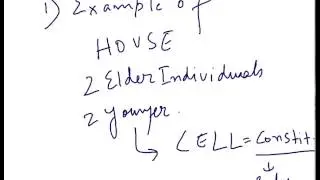 1) Example of
HOUSE
2 Elder Individuals
2 Younger
CELL = Constit